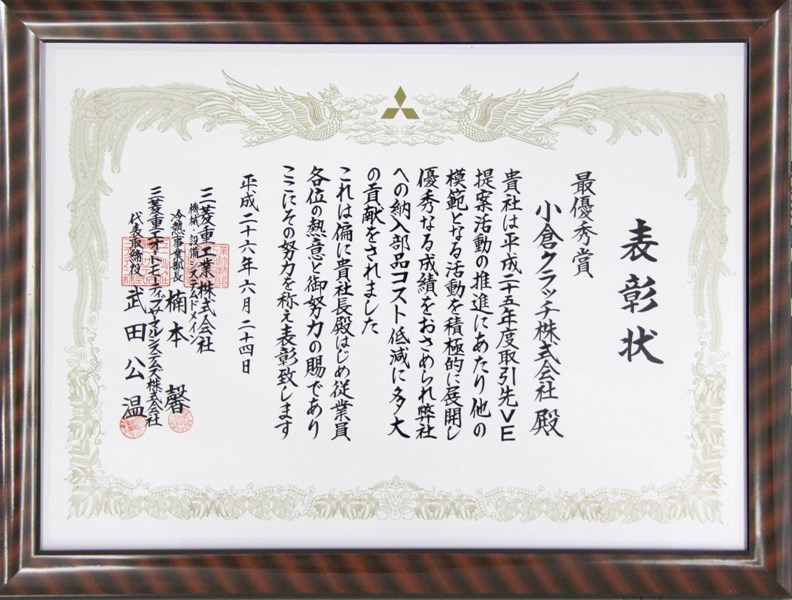 表彰状
最優秀賞
小倉クラッチ株式会社 殿
貴社は平成二十五年度取引先VE
提案活動の推進にあたり他の
模範となる活動を積極的に展開し
優秀なる成績をおさめられ弊社
への納入部品コスト低減に多大
の貢献をされました
これは偏に貴社長殿はじめ従業員
各位の熱意と御努力の賜であり
ここにその努力を称え表彰致します
平成二十六年六月二十四日
三菱重工業株式会社
機械・設備システムドメイン
冷熱事業部長 楠本 馨
三菱重工オートモーティブサーマルシステムズ株式会社
代表取締役 武田 公温